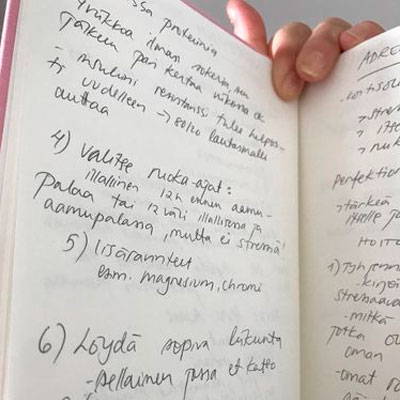 ssa proteiinia
ilman sokeria, niin
jälkeen pari kertaa viikossa ok
- insuliini resistanssi tulee helpos-
ti uudelleen → 80/20 lautasmalli
auttaa
4) Valitse ruoka-ajat:
illallinen 12h ennen aamu-
palaa tai 12 väli illallisessa ja
aamupalassa, mutta ei stressiä!
5) lisäravinteet
esim. magnesium, chromi
6) Löydä sopiva liikunta
- sellainen jossa et katso
ADRE
- kortisol
→ stre
→ itse
→ ruk
Perfektion
→ tärkeä
itselle ja
HOITO
1) Tyhjenn
- kirjoi
stressaava
- mitkä
jotka ov
oman
- omat ra